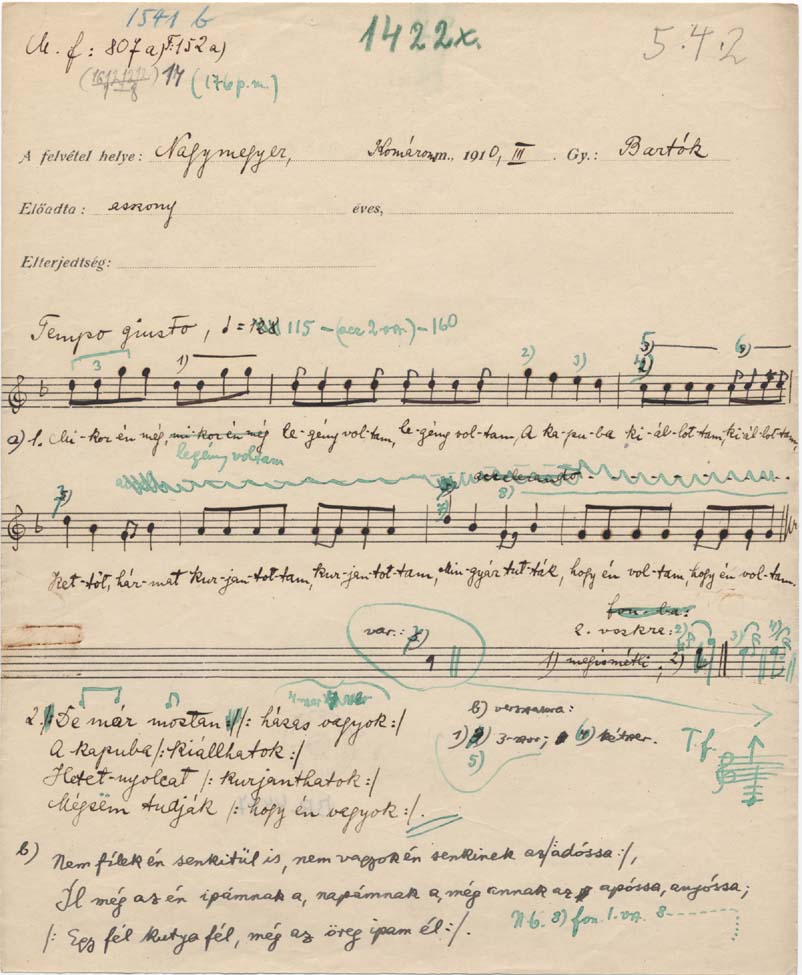 1541 b
M. f: 807a) F.152a)
1422x.
5.4.2
17 (176 p.m.)
A felvétel helye: Nagymegyer, Komárom m., 1910, III. Gy.: Bartók
Előadta: asszony éves,
Elterjedtség:
Tempo giusto, = 115 – (acc 2 vo.) – 160
3 1) 2) 3) 5
a) 1. Mi-kor én még, mi kor én még le-gény vol-tam, le-gény vol-tam, A ka-pu-ba ki-ál-lot-tam, ki-ál-lot-tam,
legény voltam
accelerando
8)
Ket-tőt, hár-mat kur-jan-tot-tam, kur-jan-tot-tam, Min-gyár tut-ták, hogy én vol-tam, hogy én vol-tam.
fon-ba:
var.: 2. voszkre:
1) megismétli; 2) 3)
2. De már mostan /: házas vagyok:/
A kapuba /: kiállhatok:/
Hetet-nyolcat /: kurjanthatok:/
Mégsëm tudják /: hogy én vagyok:/.
b) versszakra:
1) 3-szor; 4) kétszer.
5)
T.f.
b) Nem félek én senkitül is, nem vagyok én senkinek az/adóssa:/,
Él még az én ipámnak a, napámnak a, még annak az apóssa, anyóssa;
/: Egy fél kutya fél, még az öreg ipam él:/.
N b. 8) fon. 1. vsz. 8